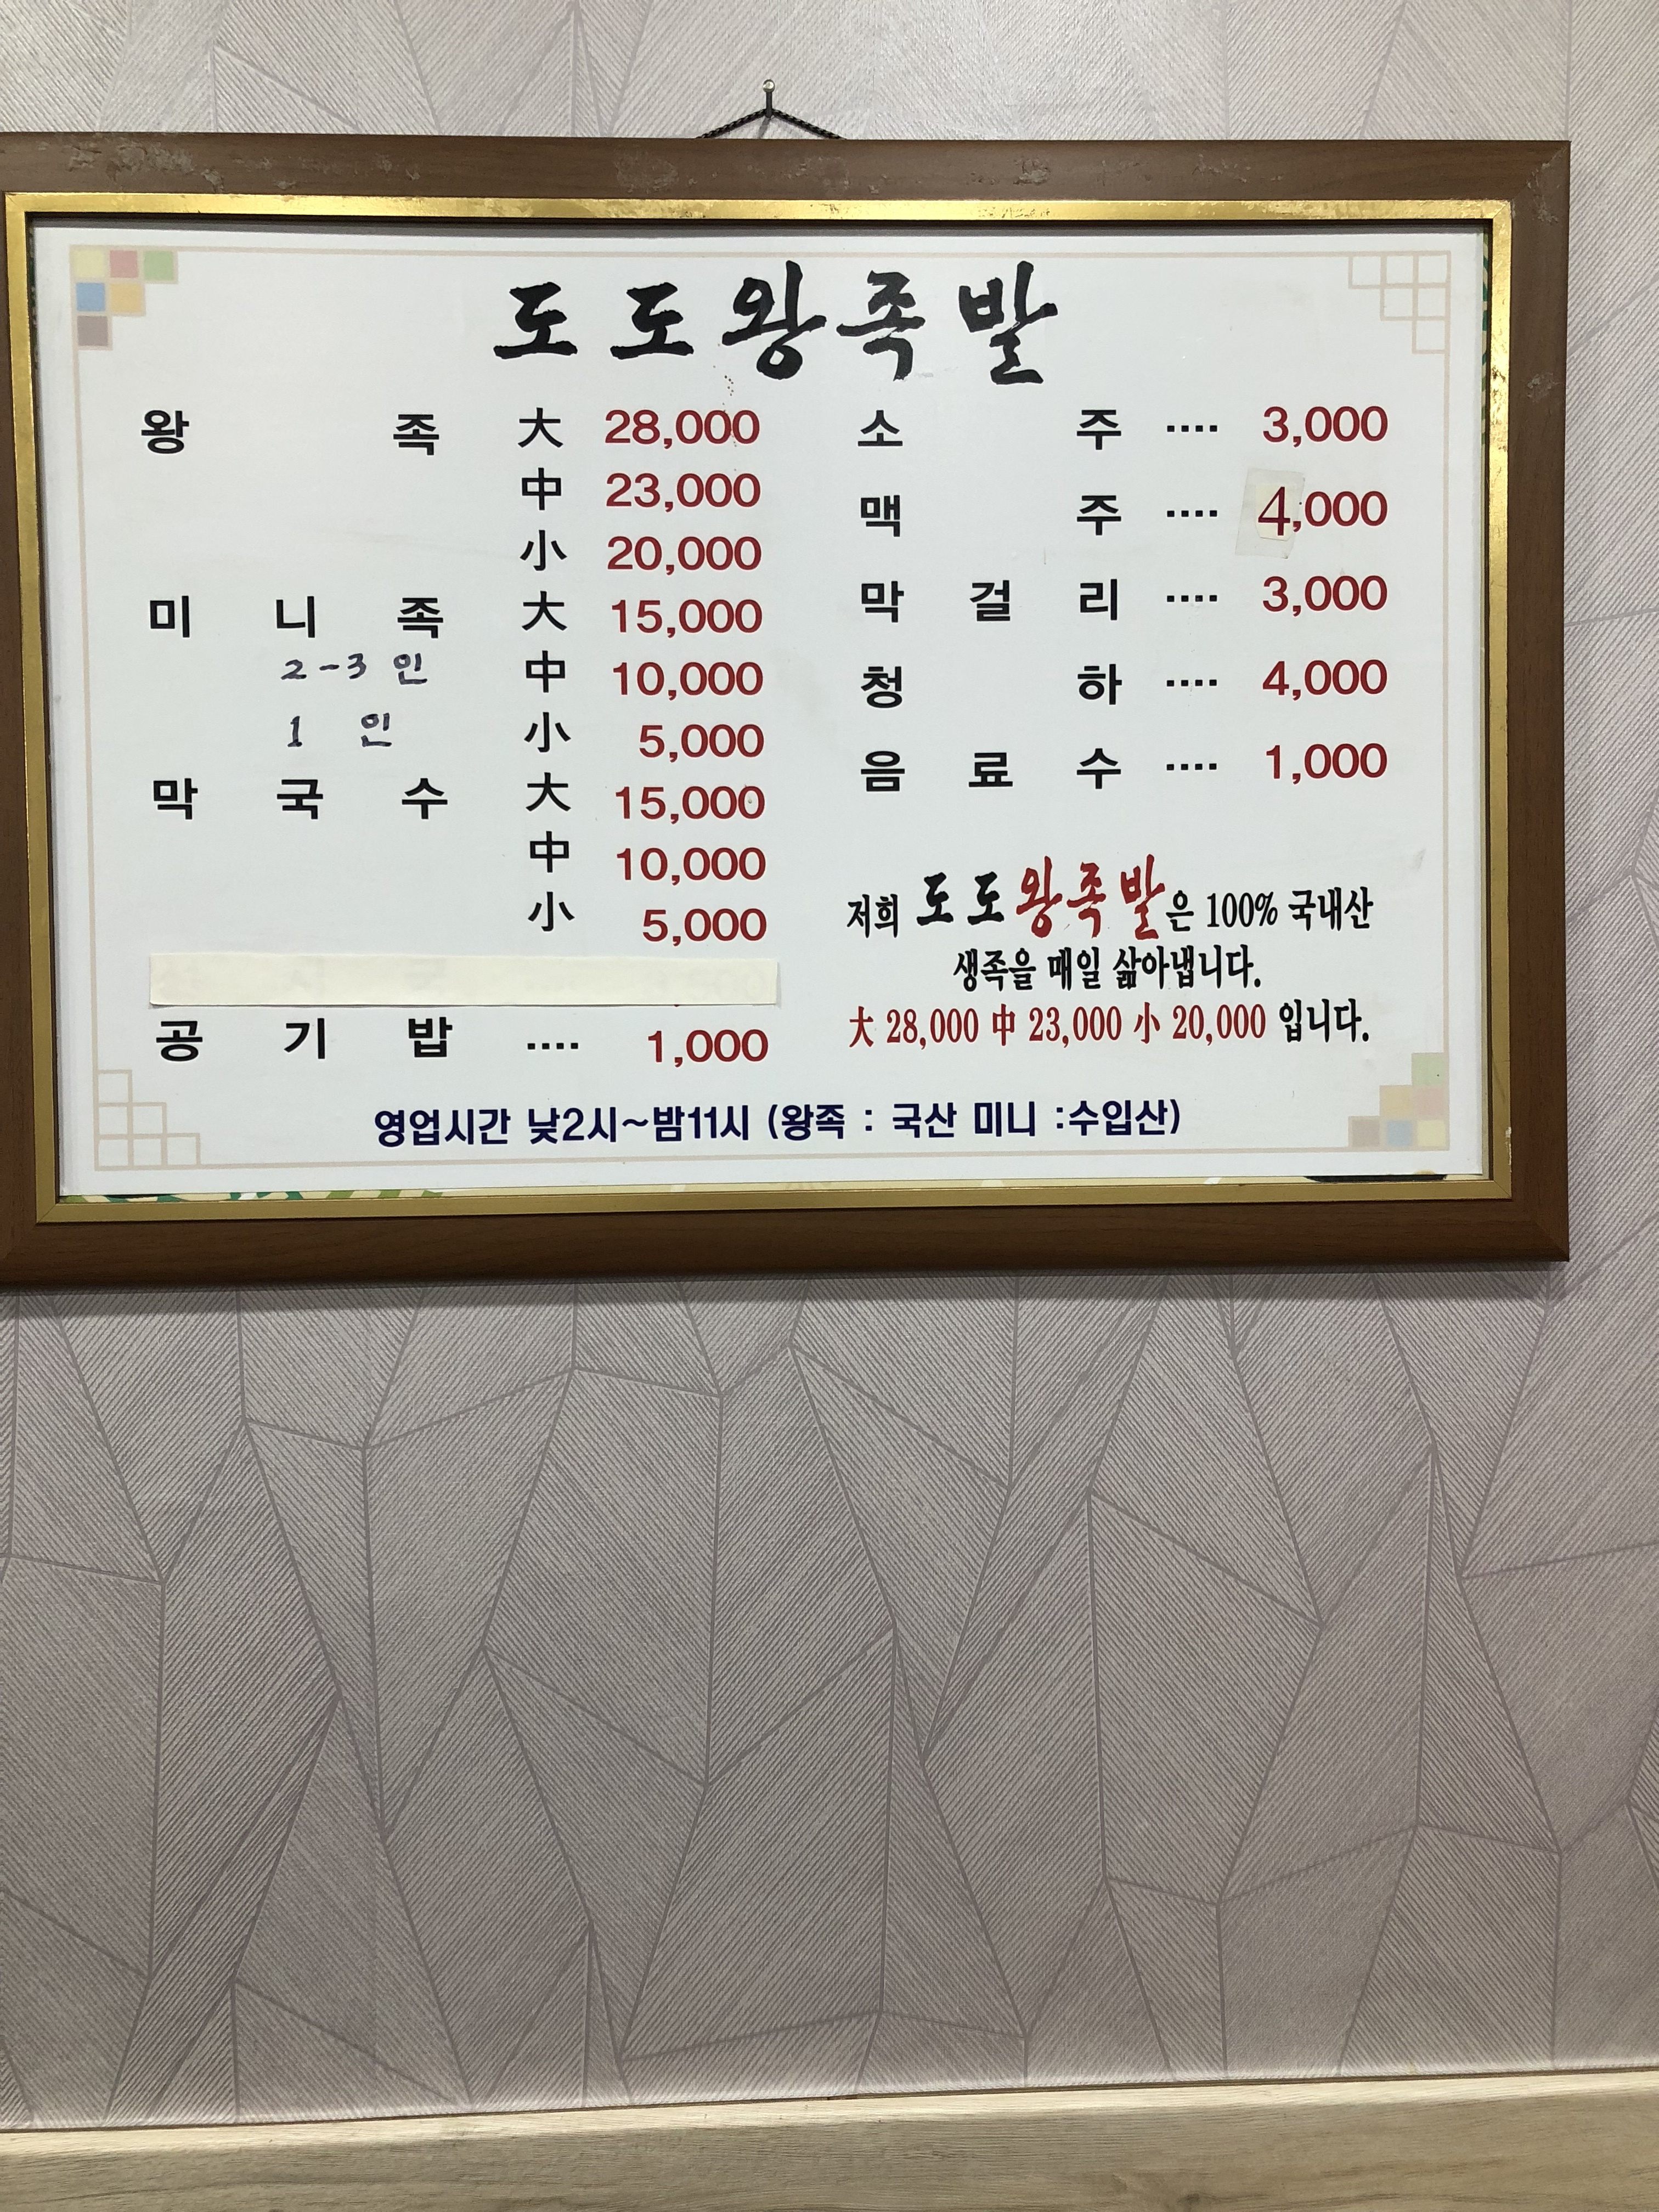 도도왕족발
왕 족 大 28,000
中 23,000
小 20,000
미 니 족 大 15,000
2-3 인 中 10,000
1 인 小 5,000
막 국 수 大 15,000
中 10,000
小 5,000
공 기 밥 .... 1,000
소 주 .... 3,000
맥 주 .... 4,000
막 걸 리 .... 3,000
청 하 .... 4,000
음 료 수 .... 1,000
저희 도도왕족발은 100% 국내산
생족을 매일 삶아냅니다.
大 28,000 中 23,000 小 20,000 입니다.
영업시간 낮2시~밤11시 (왕족 : 국산 미니 :수입산)